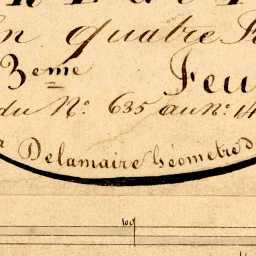 en quatre F
3eme Feu
du No. 635 au No. 14
Delamaire Géometre d
100